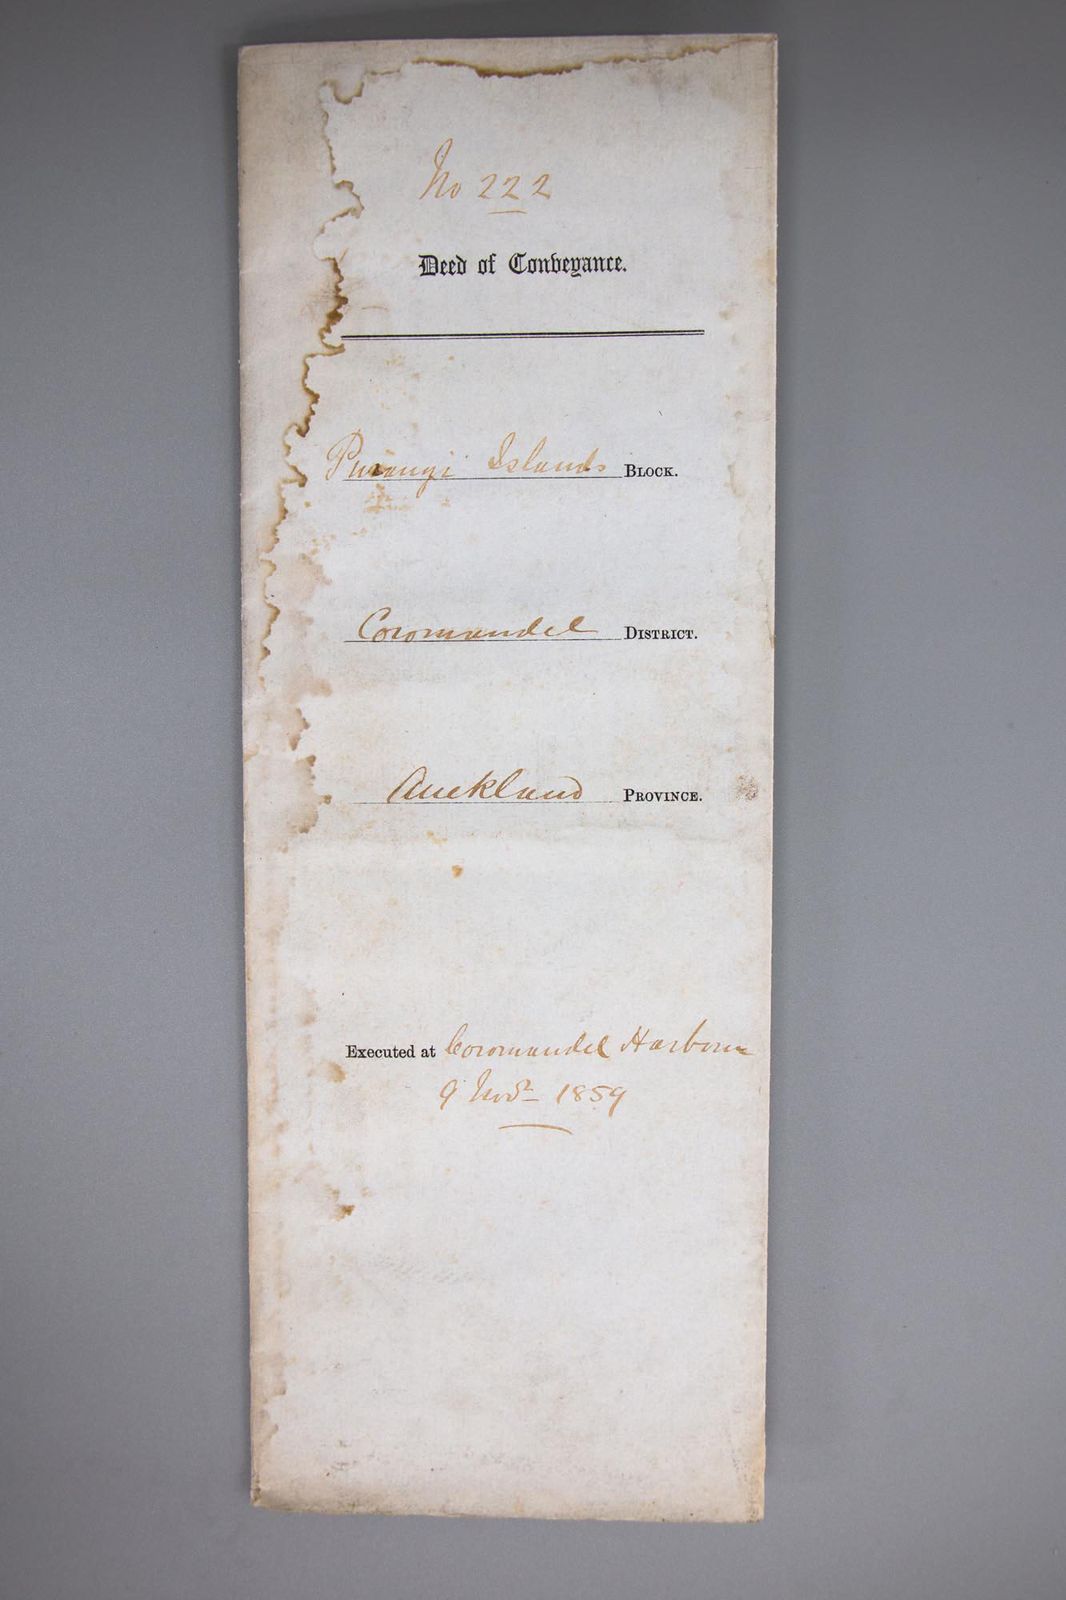 No 222
Deed of Conveyance.
Purangi Islands BLOCK.
Coromandel DISTRICT.
Auckland PROVINCE.
Executed at Coromandel Harbour
9 Novr 1859